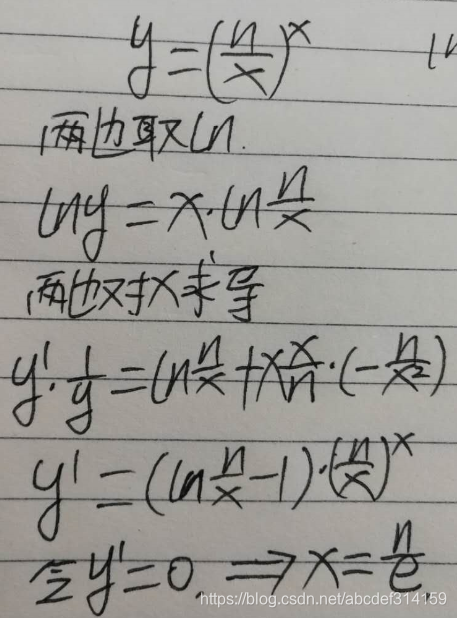 y = (n/x)^x
两边取ln.
lny = x·ln n/x
两边对x求导
y'·1/y = ln n/x + x x/n·(-n/x²)
y' = (ln n/x - 1)·(n/x)^x
令y'=0. ⇒ x = n/e
https://blog.csdn.net/abcdef314159